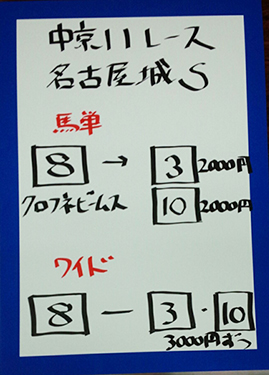 中京11レース
名古屋城S
馬単
8 → 3 2000円
クロフネビームス 10 2000円
ワイド
8 ー 3・10
3000円ずつ